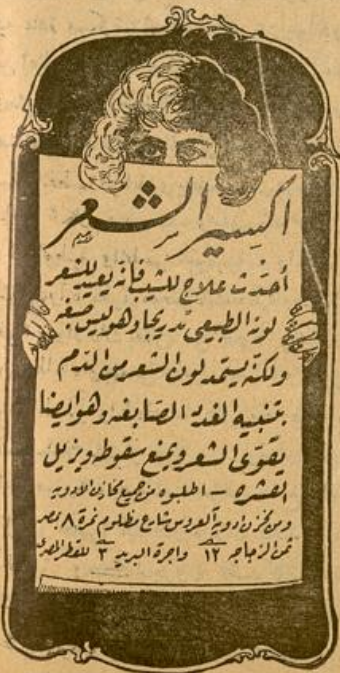 اكسير الشعر
أحدث علاج للشيب فانه يعيد للشعر
لونه الطبيعي تدريجا وهو ليس صبغه
ولكنه يستمد لون الشعر من الدم
بتنبيه الغدد الصابغه وهو ايضا
يقوى الشعر ويمنع سقوطه ويزيل
القشره – اطلبوه من جميع مخازن الادويه
ومن مخزن ادوية العروس شارع مظلوم نمرة ٨ بمصر
ثمن الزجاجه ١٢ واجرة البريد ٣ للقطر المصرى